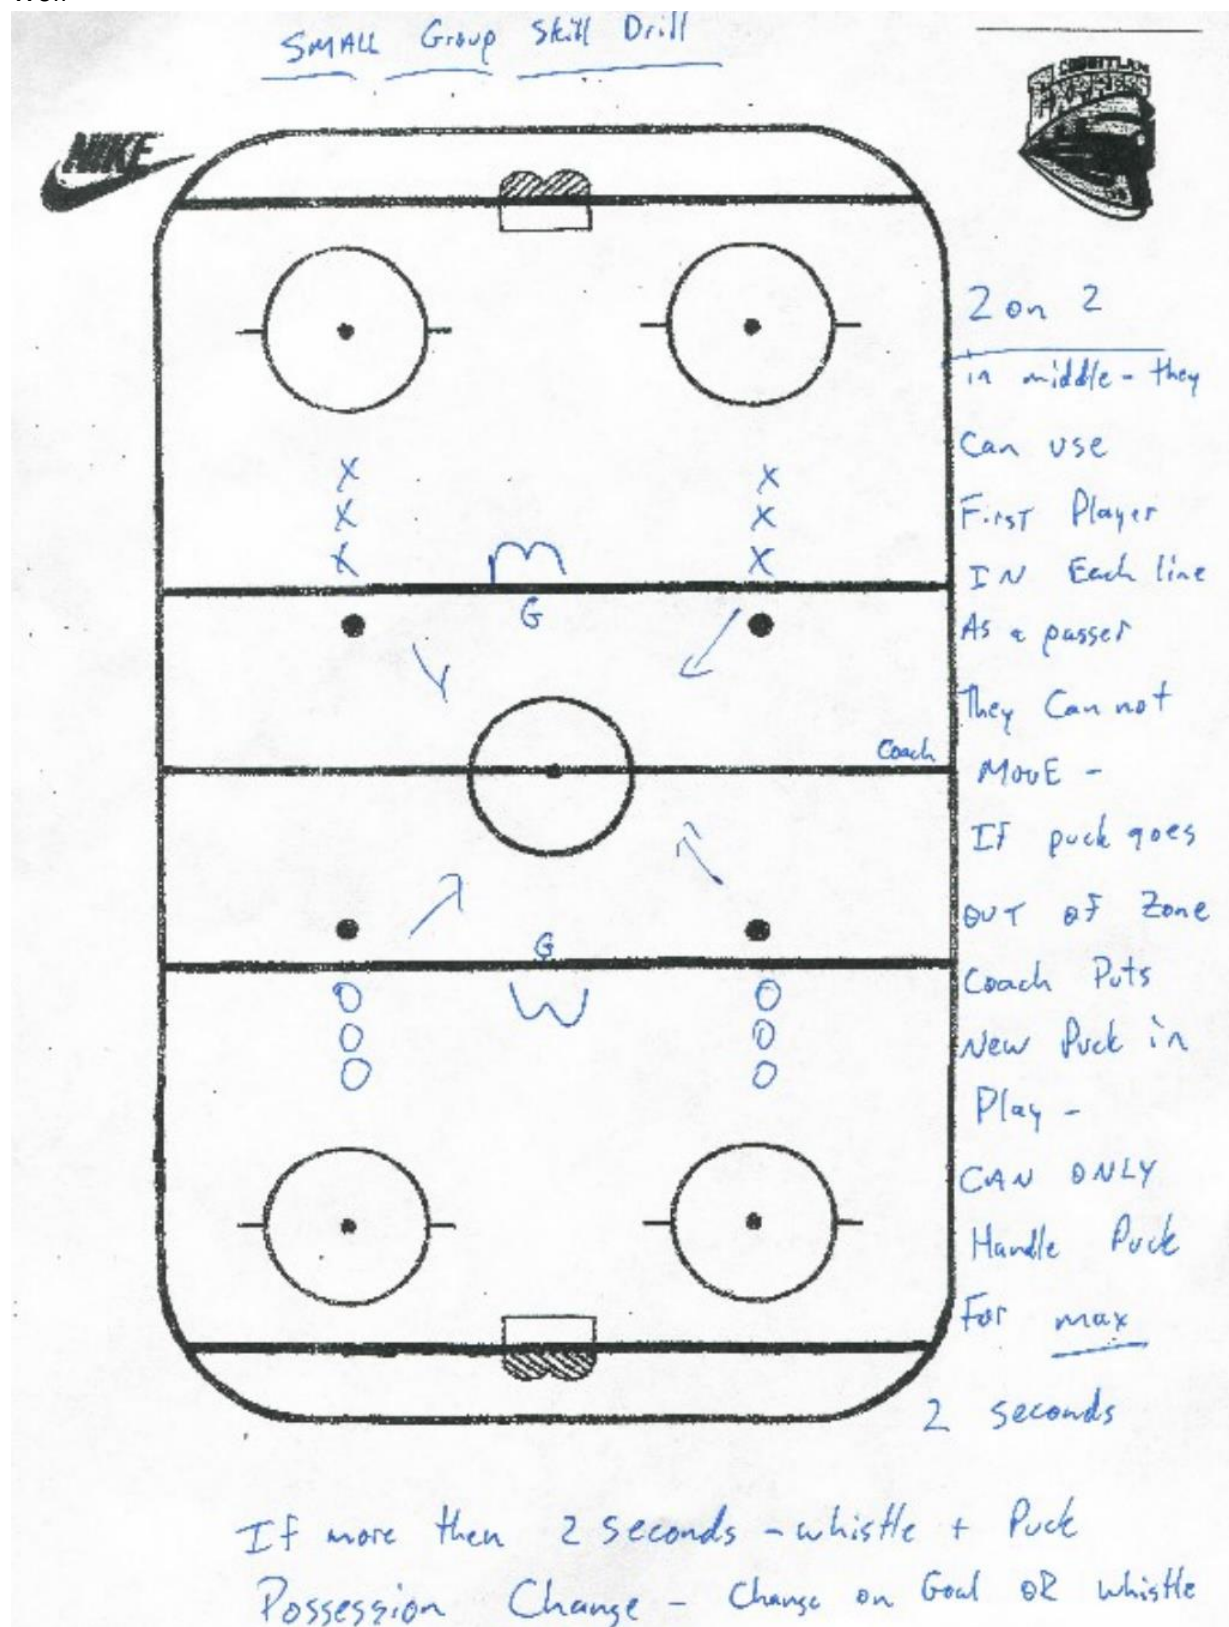 SMALL Group Skill Drill
NIKE
2 on 2
in middle - they
Can use
First Player
IN Each line
As a passer
They Can not
MOVE -
If puck goes
OUT OF Zone
Coach Puts
New Puck in
Play -
CAN ONLY
Handle Puck
For max
2 seconds
X X
X X
X X
G
Coach
G
O O
O O
O O
If more then 2 seconds - whistle + Puck
Possession Change - Change on Goal OR whistle